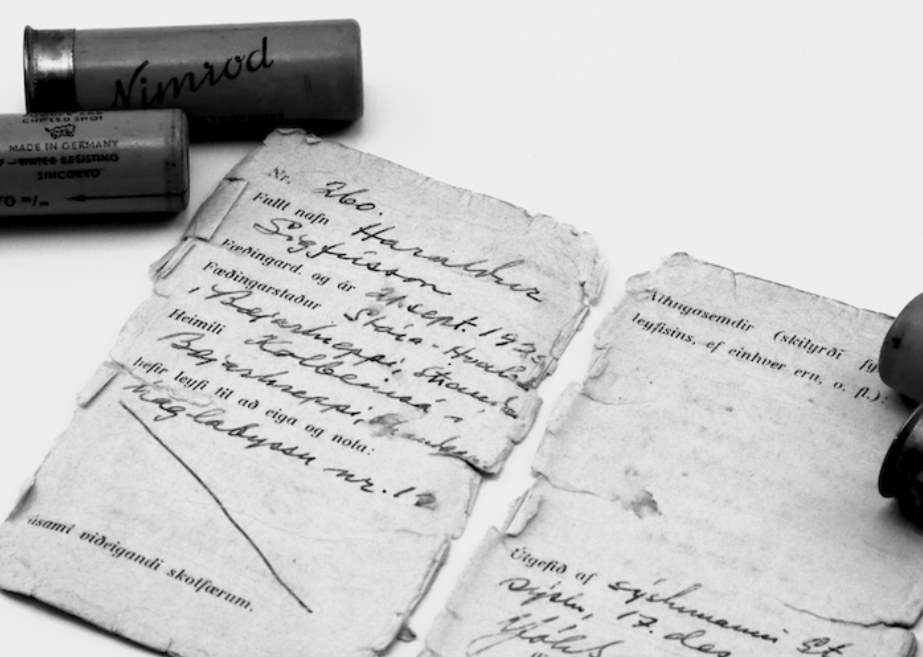 Nimrod
CHILLED SHOT
MADE IN GERMANY
WATER RESISTING
SINCOREO
70 m/m
Nr. 260.
Fullt nafn Haraldur
Sigfússon
Fæðingard. og ár 21. sept. 1925
Fæðingarstaður Stóra-Hvals
Bæjarhreppi, Strand
Heimili Kolbeinsá
Bæjarhreppi,
hefir leyfi til að eiga og nota:
haglabyssu nr. 12
ásamt viðeigandi skotfærum.
Athugasemdir (skilyrði fy
leyfisins, ef einhver eru, o. fl.):
Útgefið af sýslumanni St
sýslu, 17. des